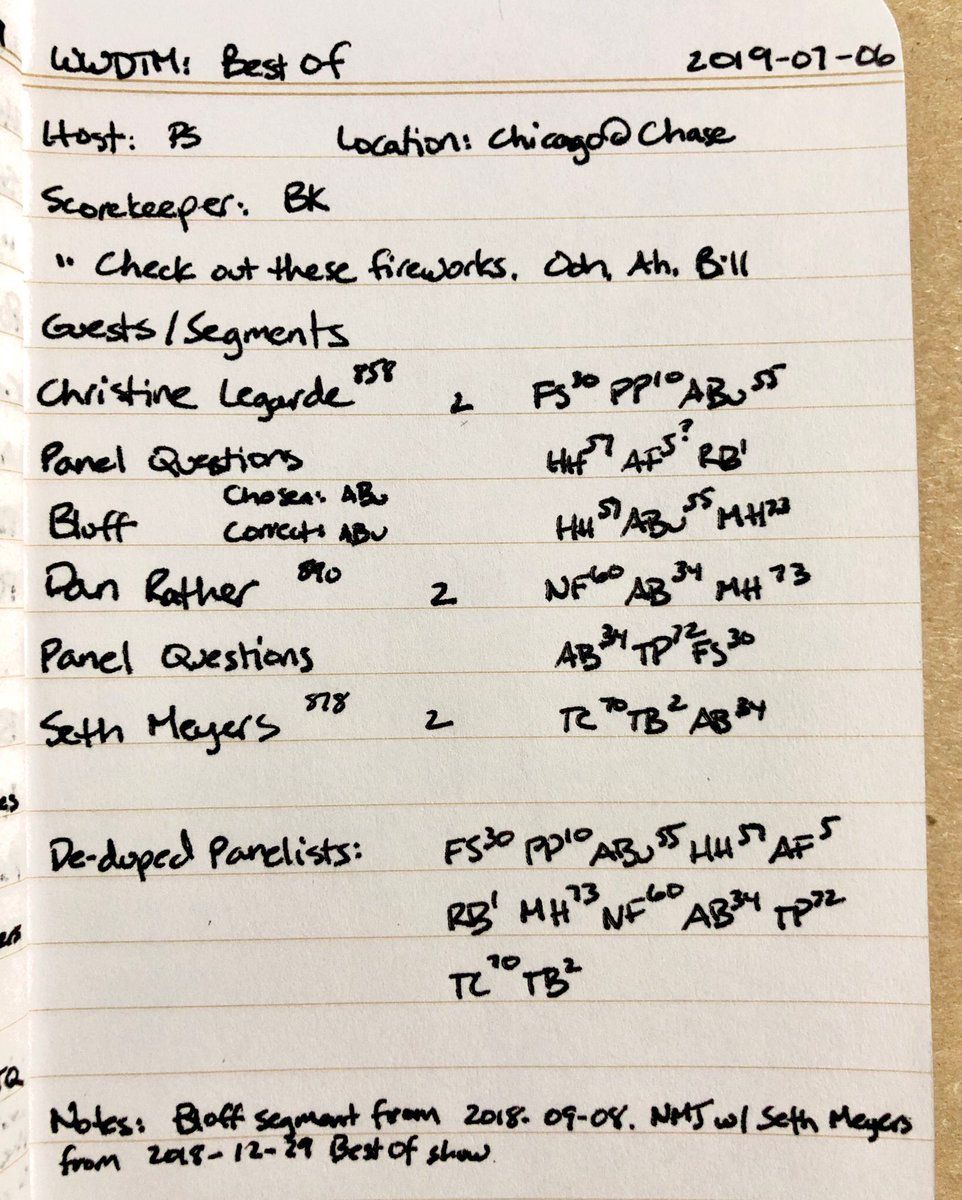 WWDTM: Best Of 2019-07-06
Host: PS Location: Chicago@Chase
Scorekeeper: BK
" Check out these fireworks. Ooh, Ah, Bill
Guests/Segments
Christine Legarde 858 2 FS30 PP10 ABu55
Panel Questions HH57 AF5? RB1
Chosen: ABu
Bluff Correct: ABu HH57 ABu55 MH73
Dan Rather 890 2 NF60 AB34 MH73
Panel Questions AB34 TP72 FS30
Seth Meyers 878 2 TC70 TB2 AB34
De-duped Panelists: FS30 PP10 ABu55 HH57 AF5
RB1 MH73 NF60 AB34 TP72
TC70 TB2
Notes: Bluff segment from 2018-09-08. NMJ w/ Seth Meyers
from 2018-12-29 Best Of show.